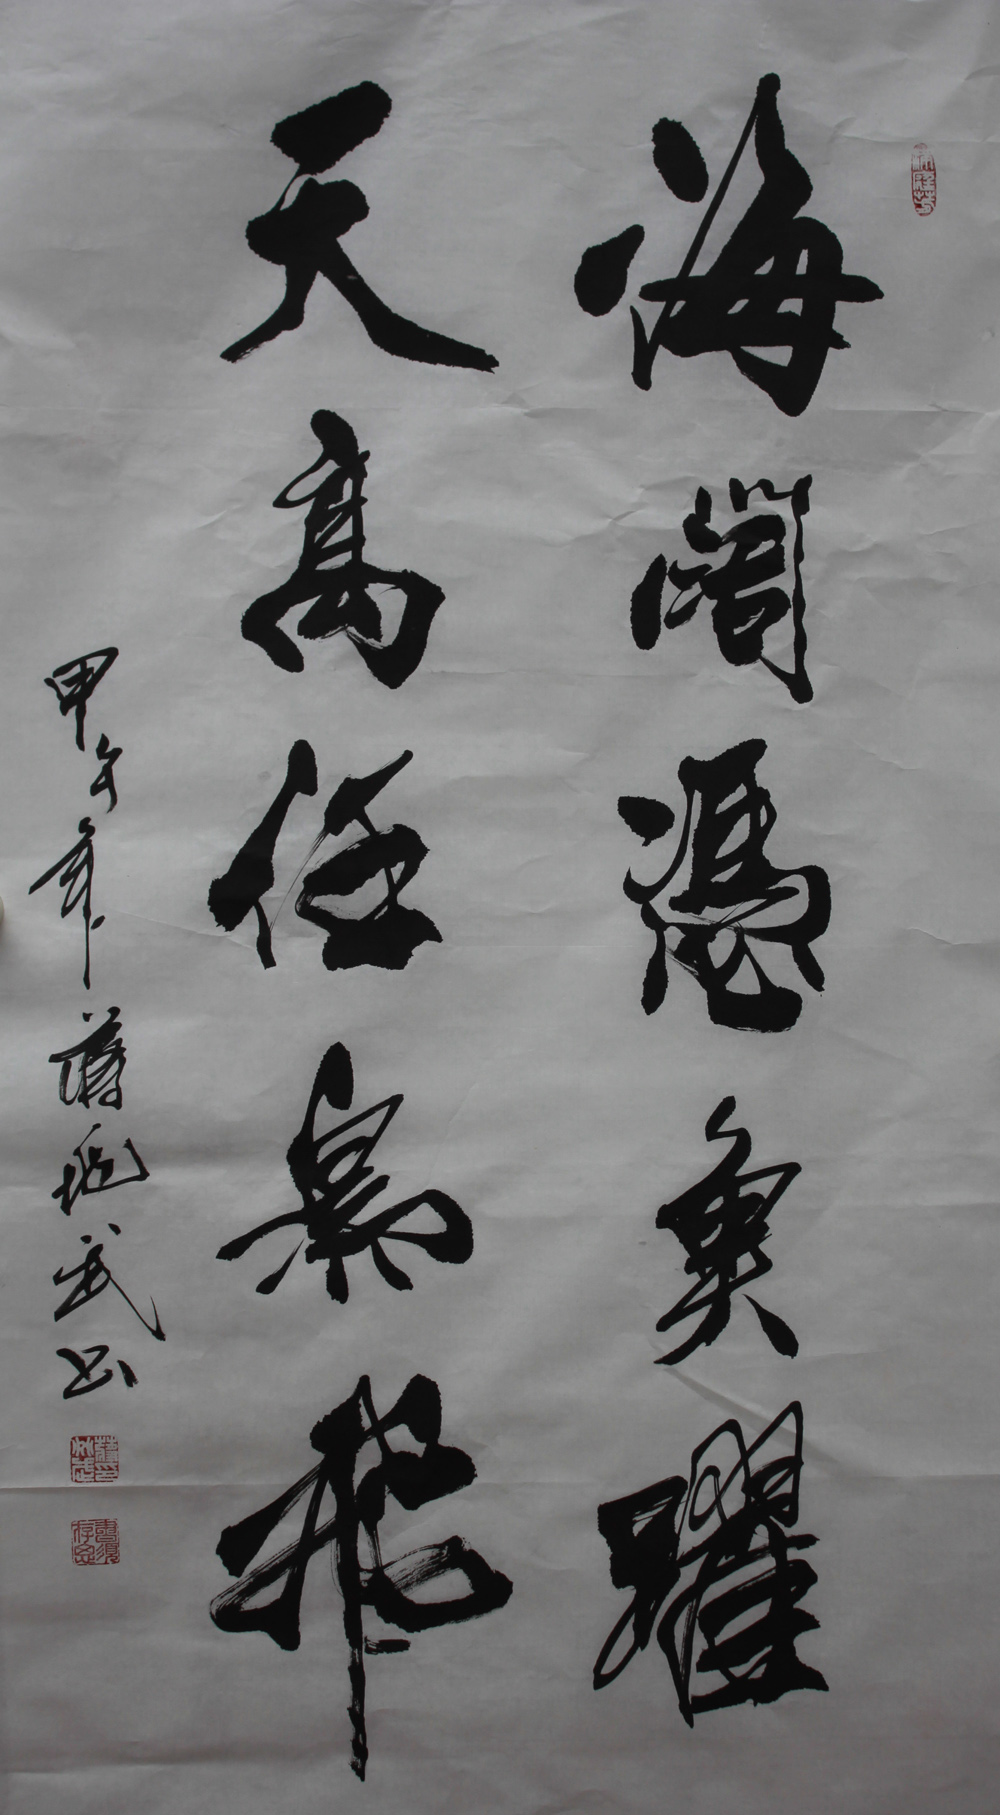 海闊憑魚躍
天高任鳥飛
甲午年 蔣 武书